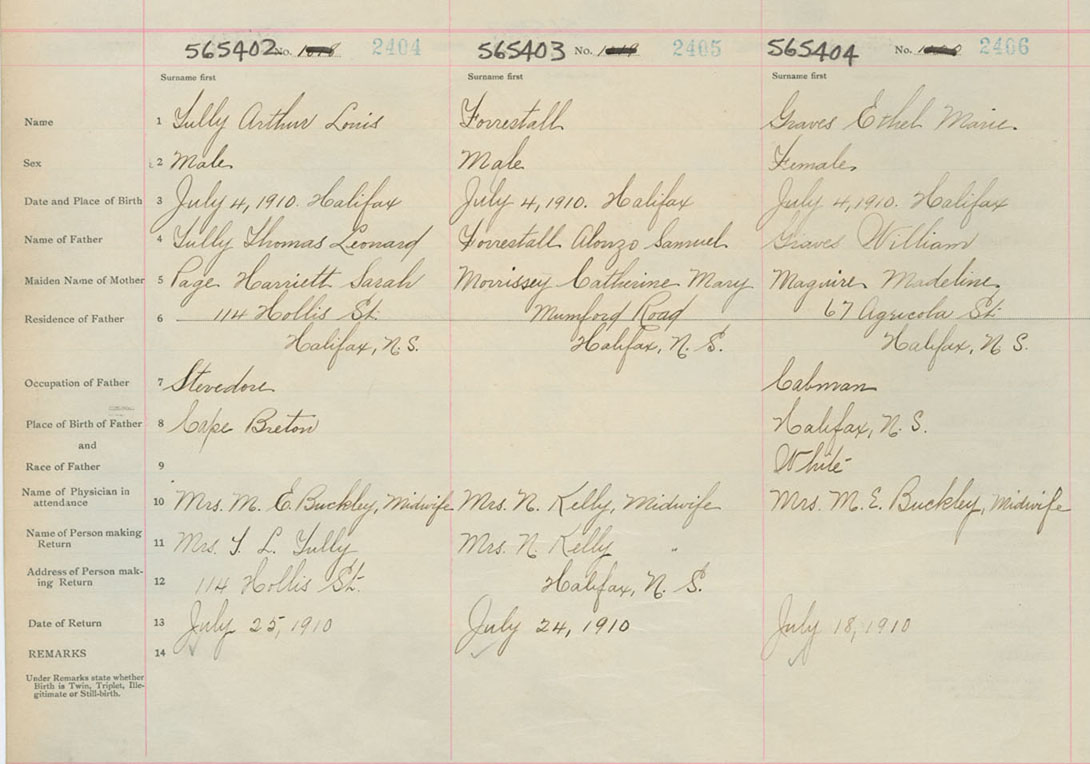 565402 No. 2404 565403 No. 2405 565404 No. 2406
Surname first Surname first Surname first
Name 1 Tully Arthur Louis Forrestall Graves Ethel Marie.
Sex 2 Male. Male Female.
Date and Place of Birth 3 July 4, 1910. Halifax July 4, 1910. Halifax July 4, 1910. Halifax
Name of Father 4 Tully Thomas Leonard Forrestall Alonzo Samuel Graves William
Maiden Name of Mother 5 Page Harriett Sarah Morrissey Catherine Mary Maguire Madeline.
Residence of Father 6 114 Hollis St. Mumford Road 67 Agricola St.
Halifax, N.S. Halifax, N.S. Halifax, N.S.
Occupation of Father 7 Stevedore Cabman
Place of Birth of Father 8 Cape Breton Halifax, N.S.
and
Race of Father 9 White
Name of Physician in attendance 10 Mrs. M. E. Buckley, Midwife Mrs. N. Kelly, Midwife Mrs. M. E. Buckley, Midwife
Name of Person making Return 11 Mrs. T. L. Tully Mrs. N. Kelly "
Address of Person mak-ing Return 12 114 Hollis St. Halifax, N.S.
Date of Return 13 July 25, 1910 July 24, 1910 July 18, 1910
REMARKS 14
Under Remarks state whether
Birth is Twin, Triplet, Ille-
gitimate or Still-birth.